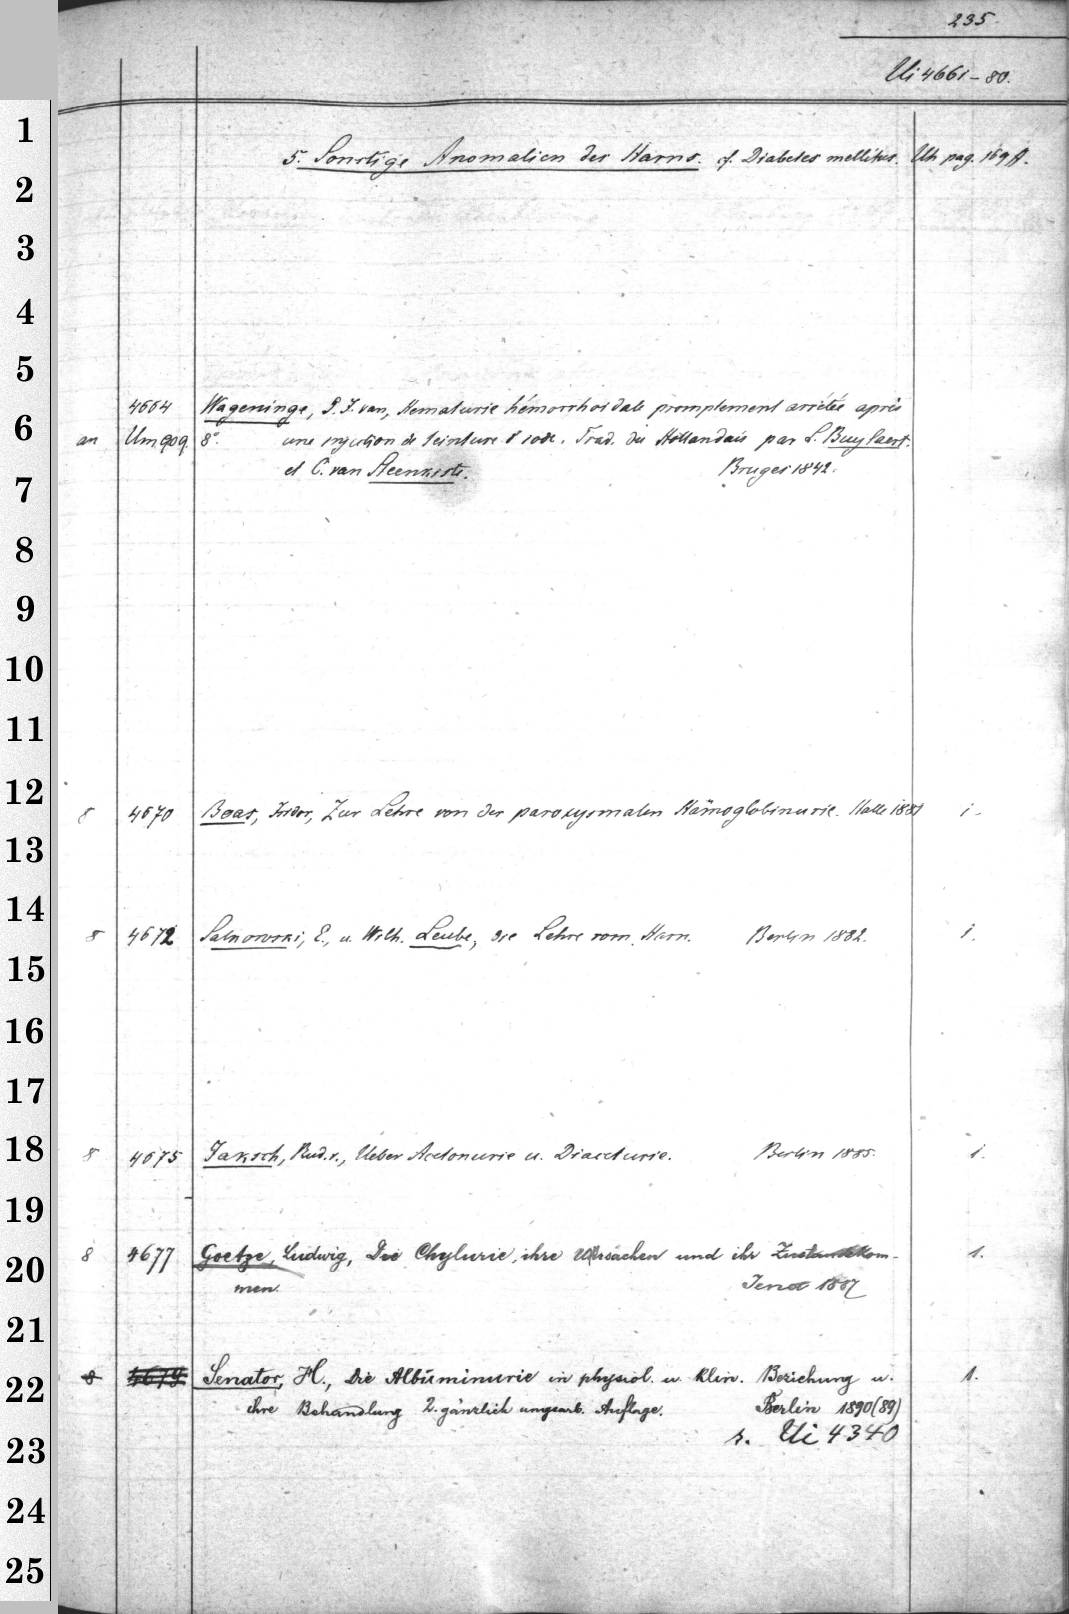 235.
Ui 4661-80.
1
5. Sonstige Anomalien des Harns. cf. Diabetes mellitus. Uh pag. 169 ff.
2
3
4
5
4664 Wageninge, P. J. van, Hematurie hémorrhoidale promptement arrêtée après
6
an Um 909 8°. une injection de teinture d'iode. Trad. du Hollandais par L. Buylaert.
et C. van Steenkiste. Bruges 1842.
7
8
9
10
11
12
8 4670 Boas, Isidor, Zur Lehre von der paroxysmalen Hämoglobinurie. Halle 1881 1.
13
14
8 4672 Salkowski, E., u. Wilh. Leube, die Lehre vom Harn. Berlin 1882. 1.
15
16
17
18
8 4675 Jaksch, Rud. v., Ueber Acetonurie u. Diaceturie. Berlin 1885. 1.
19
20
8 4677 Goetze, Ludwig, Die Chylurie, ihre Ursachen und ihr Zustandekom- 1.
men. Jena 1887
21
22
8 4679 Senator, H., Die Albuminurie in physiol. u. klin. Beziehung u. 1.
ihre Behandlung 2. gänzlich umgearb. Auflage. Berlin 1890(89)
s. Ui 4340
23
24
25